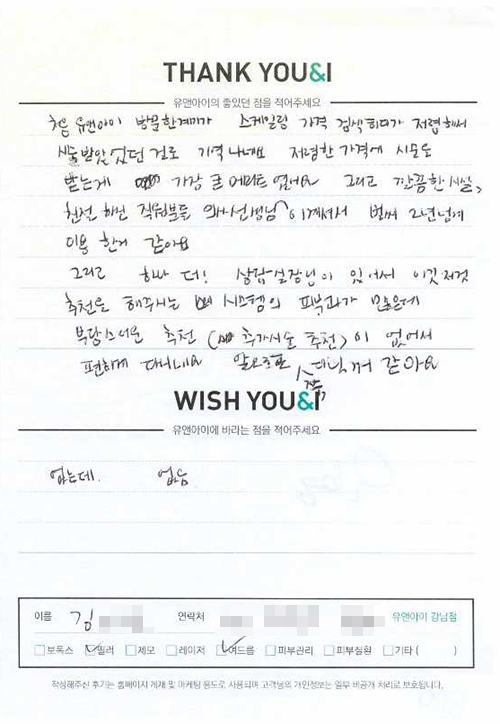 THANK YOU&I
유앤아이의 좋았던 점을 적어주세요
처음 유앤아이 방문한계기가 스케일링 가격 검색하다가 저렴해서
시술받았었던 걸로 기억나네요 저렴한 가격에 시술을
받는게 가장 큰 메리트였어요 그리고 깔끔한 시설,
친절하신 직원분들 의사선생님이 계셔서 벌써 2년넘게
이용한거 같아요
그리고 하나 더! 상담실장님이 있어서 이것저것
추천을 해주시는 시스템의 피부과가 많은데
부담스러운 추천 (추가시술 추천)이 없어서
편하게 다니네요 앞으로도 계속 다닐꺼 같아요
WISH YOU&I
유앤아이에 바라는 점을 적어주세요
없는데. 없음
이름 김 연락처 유앤아이 강남점
보톡스 필러 제모 레이저 여드름 피부관리 피부질환 기타 ( )
작성해주신 후기는 홈페이지 게재 및 마케팅 용도로 사용되며 고객님의 개인정보는 일부 비공개 처리로 보호됩니다.